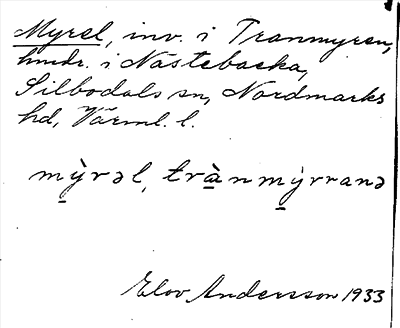 Myrel, inv. i Tranmyren,
hmdr. i Nästebacka,
Silbodals sn, Nordmarks
hd, Värml. l.
m̲ỳrəl, trà̲nm̲ỳrranə
Elov Andersson 1933